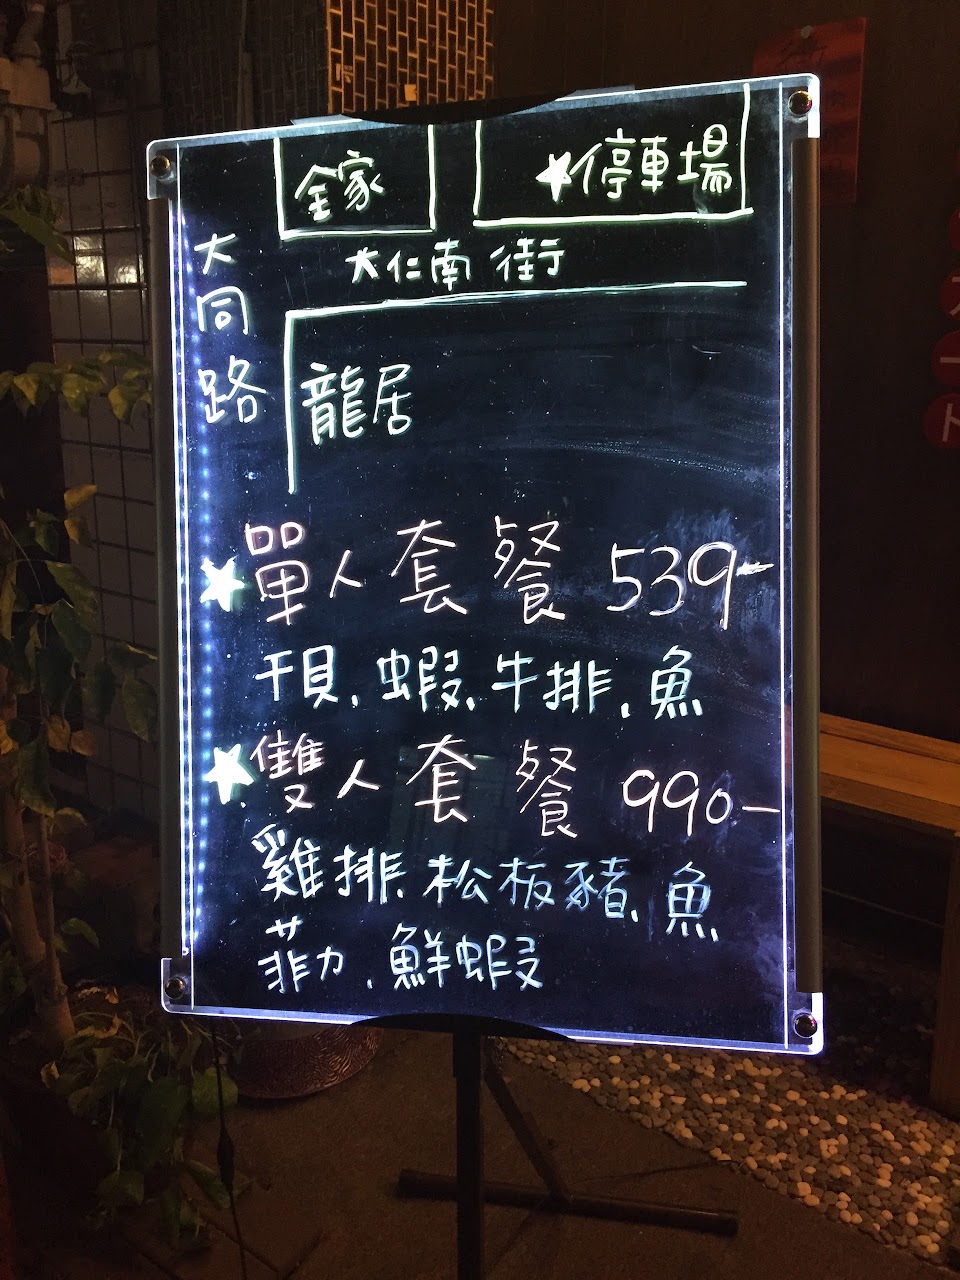 全家
★停車場
大仁南街
大同路
龍居
★單人套餐 539-
干貝、蝦、牛排、魚
★雙人套餐 990-
雞排、松板豬、魚
菲力、鮮蝦